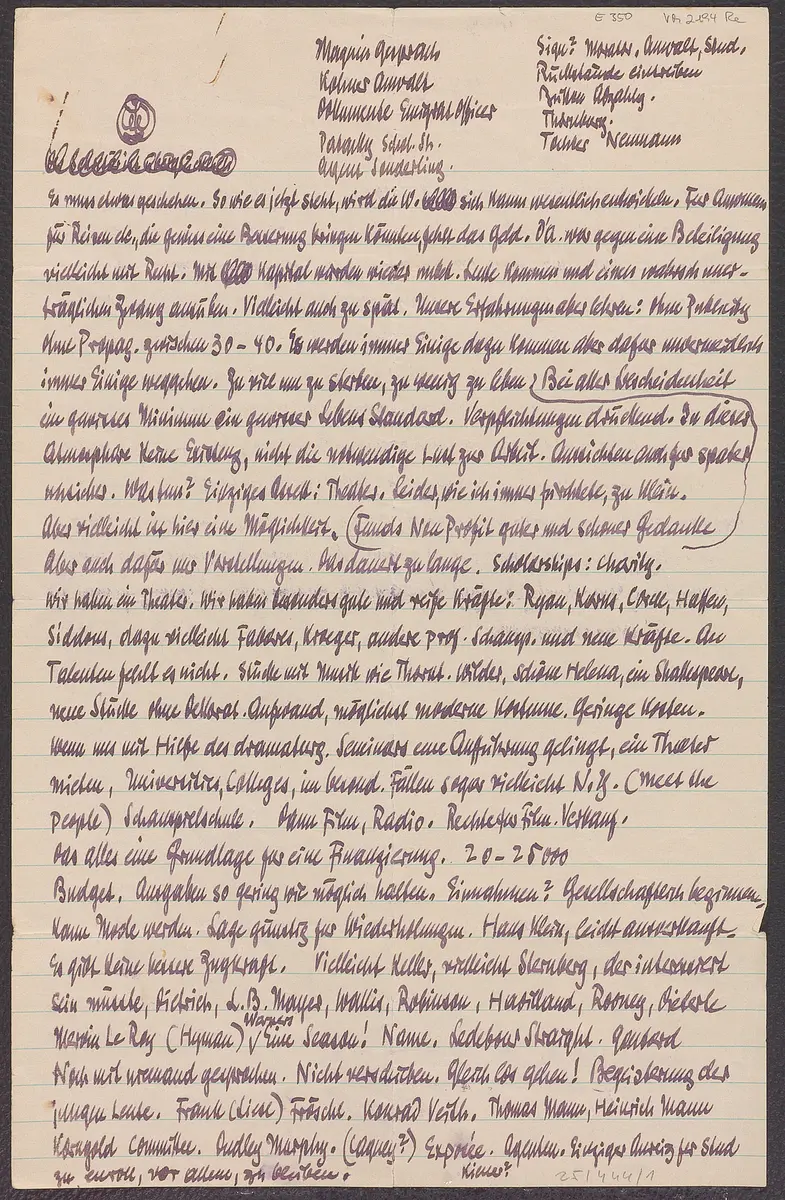 E 350 VM 2194 Re
Magnus Gespräch
Kohner Anwalt
Dokumente Emigrat. Officer
Agent Sonderling.
Sign? Morator. Anwalt, Stud.
Rückstände eintreiben
Abzahlg.
Thornburg.
Tochter Neumann
Es muss etwas geschehen. So wie es jetzt steht, wird die W. sich kaum wesentlich entwickeln. Für Annoncen
für Reisen etc., die gewiss eine Besserung bringen könnten, fehlt das Geld. war gegen eine Beteiligung
vielleicht mit Recht. Mit Kapital werden wieder Leute kommen und einen wahrsch. uner-
träglichen Zwang ausüben. Vielleicht auch zu spät. Unsere Erfahrungen aber lehren: Ohne Publicity
ohne Propag. zwischen 30-40. Es werden immer Einige dazu kommen aber dafür unvermeidlich
immer Einige weggehen. Zu viel um zu sterben, zu wenig zu leben. Bei aller Bescheidenheit
ein gewisses Minimum ein gewisser Lebens Standard. Verpflichtungen drückend. In dieser
Atmosphäre keine Existenz, nicht die notwendige Lust zur Arbeit. Aussichten auch für später
unsicher. Was tun? Einziges Asset: Theater. Leider, wie ich immer fürchtete, zu klein.
Aber vielleicht ist hier eine Möglichkeit. (Funds Non Profit guter und schöner Gedanke
Aber auch dafür nur Vorstellungen. Das dauert zu lange. Scholarships: Charity.
Wir haben ein Theater. Wir haben besonders gute und reife Kräfte: Ryan, Korns, Corell, Hatfen,
Siddons, dazu vielleicht Fabares, Kroeger, andere prof. Schausp. und neue Kräfte. An
Talenten fehlt es nicht. Stücke mit Musik wie Thornt. Wilder, Schöne Helena, ein Shakespeare,
neue Stücke ohne Dekorat. Aufwand, möglichst moderne Kostüme. Geringe Kosten.
Wenn uns mit Hilfe des dramaturg. Seminars eine Aufführung gelingt, ein Theater
mieten, Universities, Colleges, im besond. Fällen sogar vielleicht N.Y. (Meet the
People) Schauspielschule. Dann Film, Radio. Rechte für Film. Verkauf.
Das alles eine Grundlage für eine Finanzierung. 20-25000
Budget. Ausgaben so gering wie möglich halten. Einnahmen? Gesellschaftlich beginnen,
kann Mode werden. Lage günstig für Wiederholungen. Haus klein, leicht ausverkauft.
Es gibt keine bessere Zugkraft. Vielleicht Keller, vielleicht Sternberg, der interessiert
sein müsste, Dietrich, L.B. Mayer, Wallis, Robinson, Havilland, Rooney, Dieterle
Mervin Le Roy (Hyman) Warners Eine Season! Name. Ledebour Straight.
Noch mit niemand gesprochen. Nicht verschieben. Gleich los gehen! Begeisterung der
jungen Leute. Frank (Liesl) Frösche. Konrad Veidt. Thomas Mann, Heinrich Mann
Korngold Committee. Dudley Murphy. (Cagney?) Exposée. Agenten. Einziger Anreiz für Stud
zu enroll, vor allem, zu bleiben. Kiener?
25/444/1